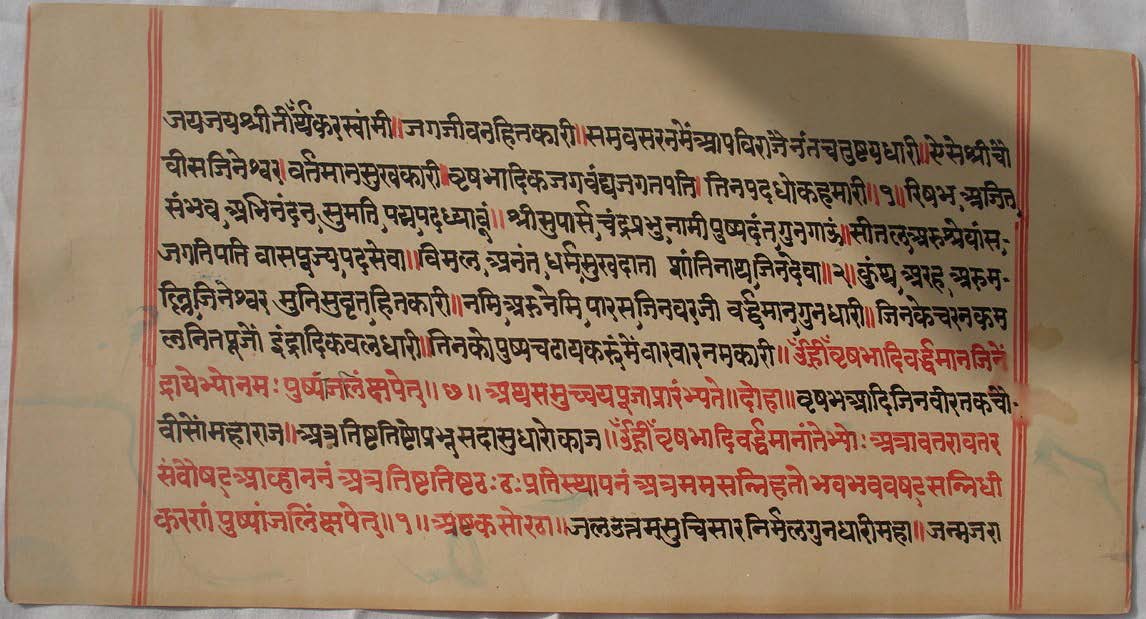 जयजयश्रीतीर्थंकरस्वांमी॥जगजीवनहितकारी॥समवसरनमेंआपविराजैनंतचतुष्टयधारी॥ऐसेश्रीचौ
वीसजिनेश्वर॥वर्तमानसुखकारी॥वृषभादिकजगवंद्यजगतपति॥तिनपदधोकहमारी॥१॥रिषभअजित
संभवअभिनंदनसुमतिपद्मपदध्यावूं॥श्रीसुपार्सचंद्रप्रभुनामीपुष्पदंतगुनगाऊं॥सीतलअरुश्रेयांस
जगतिपतिवासपूज्यपदसेवा॥विमलअनंतधर्मसुखदाता शांतिनाथजिनदेवा॥२॥कुंथअरहअरुम
ल्लिजिनेश्वरमुनिसुवृतहितकारी॥नमिअरुनेमिपारसजिनवरजीवर्द्धमानगुनधारी॥जिनकेचरनकम
लनितपूजों इंद्रादिकवलधारी॥तिनकोपुष्पचढायकरूंमेंवारवारनमकारी॥ॐह्रींवृषभादिवर्द्धमानजिनें
द्रायेभ्योनमः पुष्पांजलिंक्षपेत्॥७॥अथसमुच्चयपूजाप्रारंभ्यते॥दोहा॥वृषभआदिजिनवीरतकचौ
वीसोंमहाराज॥अत्रतिष्टतिष्टोप्रभूसदासुधारोकाज॥ॐह्रींवृषभादिवर्द्धमानांतेभ्योः अत्रावतरावतर
संवौषट्आव्हाननंअत्रतिष्टतिष्टठःठःप्रतिस्थापनंअत्रममसन्निहतोभवभववषट्सन्निधी
करणंपुष्पांजलिंक्षपेत्॥१॥अष्टकसोरठा॥जलउत्तमसुचिसारनिर्मलगुनधारीमहा॥जन्मजरा